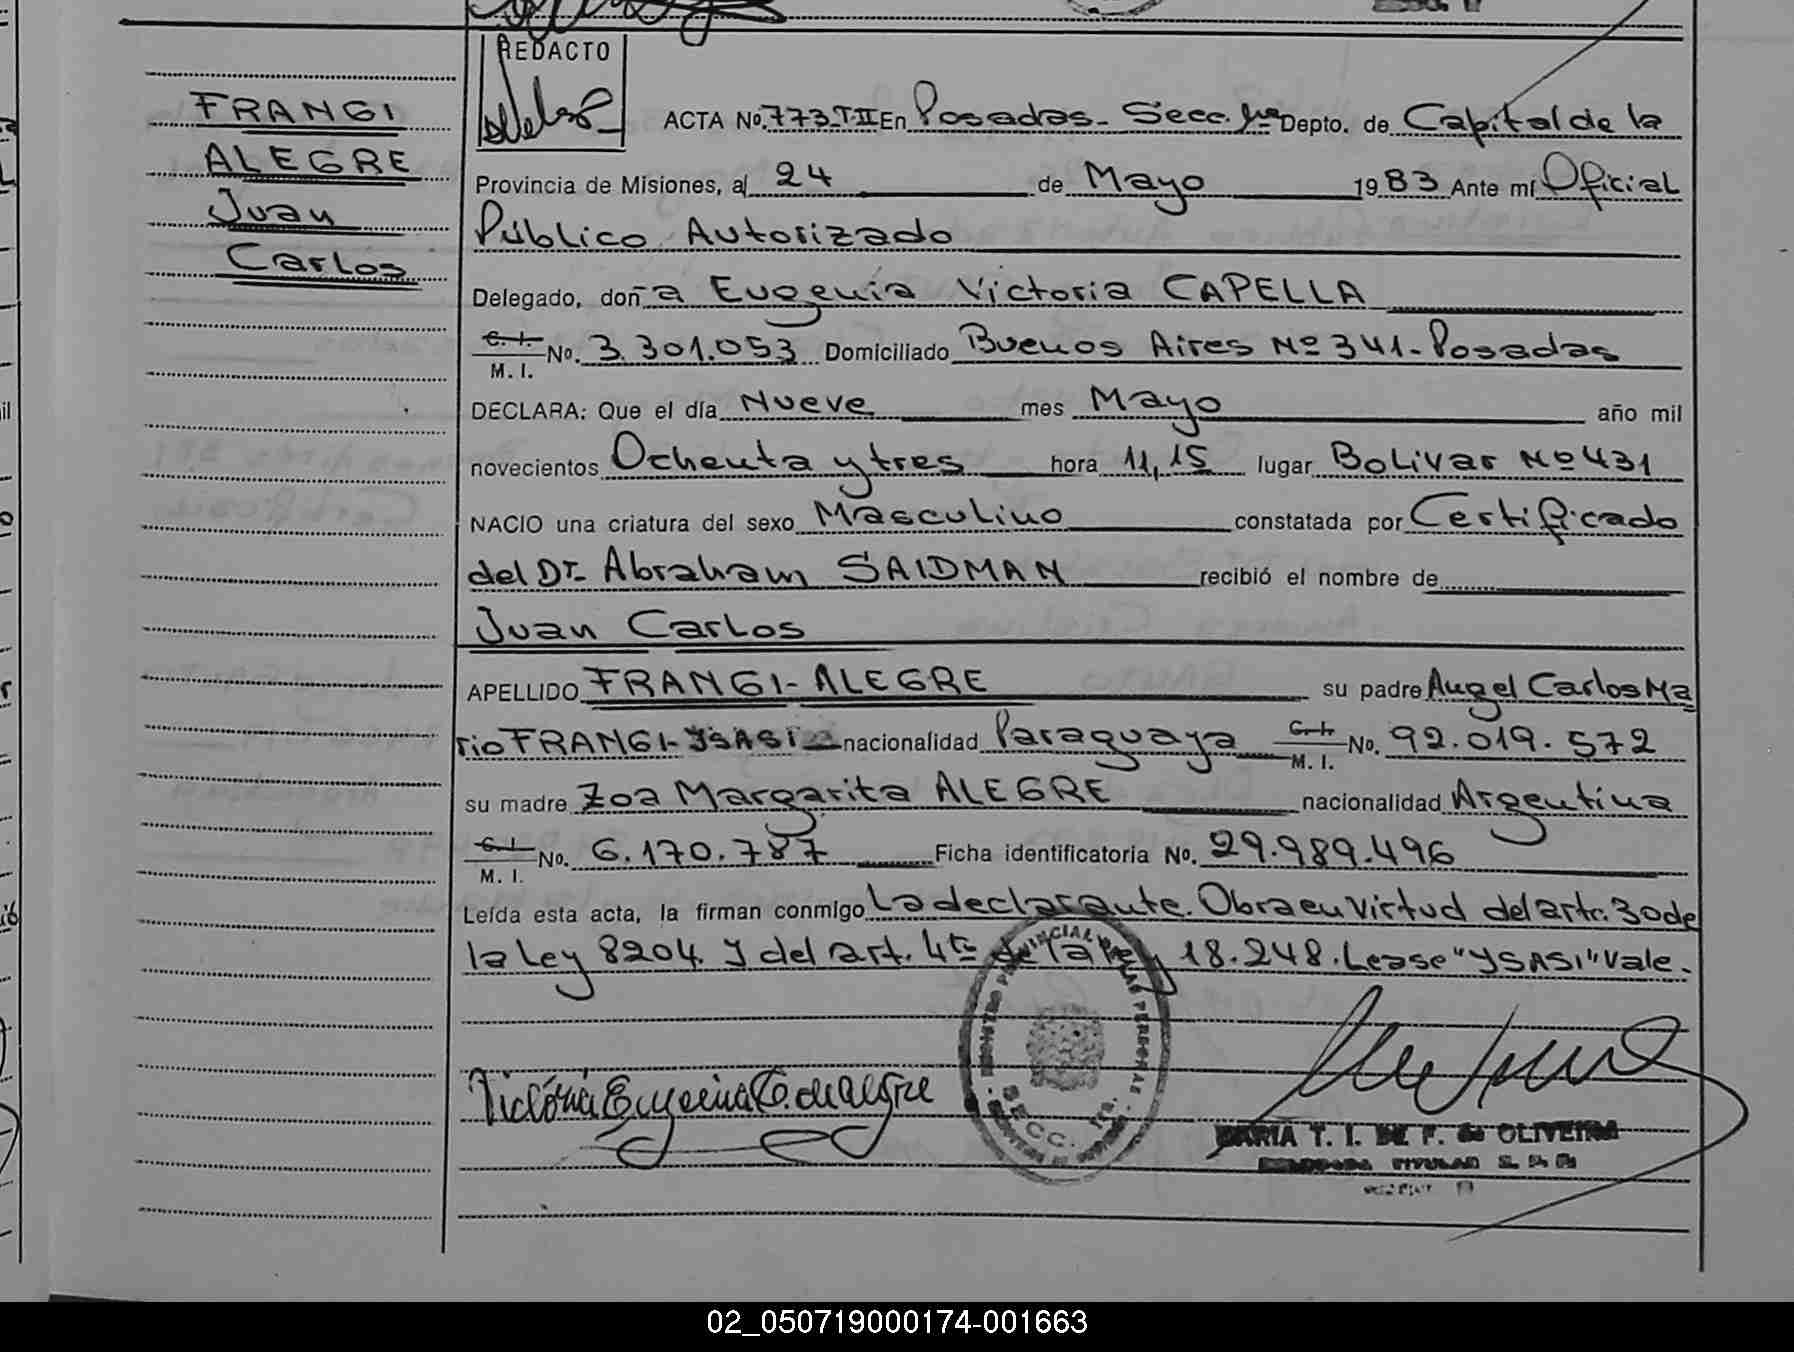 REDACTO
FRANGI
ALEGRE
Juan
Carlos
ACTA No. 773-T-II En Posadas - Secc. 1ra Depto. de Capital de la
Provincia de Misiones, al 24 de Mayo 1983 Ante mí Oficial
Público Autorizado
Delegado, doña Eugenia Victoria CAPELLA
C. I. M. I. No. 3.301.053 Domiciliado Buenos Aires Nº 341 - Posadas
DECLARA: Que el día Nueve mes Mayo año mil
novecientos Ochenta y tres hora 11,15 lugar Bolivar Nº 431
NACIO una criatura del sexo Masculino constatada por Certificado
del Dr. Abraham SAIDMAN recibió el nombre de
Juan Carlos
APELLIDO FRANGI - ALEGRE su padre Angel Carlos Ma
rio FRANGI - YSASI nacionalidad Paraguaya C. I. M. I. No. 92.019.572
su madre Zoa Margarita ALEGRE nacionalidad Argentina
C. I. M. I. No. 6.170.787 Ficha identificatoria No. 29.989.496
Leída esta acta, la firman conmigo La declarante. Obra en virtud del art. 30 de
la Ley 8204. Y del art. 4to de la Ley 18.248. Lease "YSASI" Vale.
REGISTRO PROVINCIAL DE LAS PERSONAS
SECC. 1ra.
Victoria Eugenia C. de Alegre
MARIA T. I. DE F. de OLIVEIRA
TITULAR
02_050719000174-001663